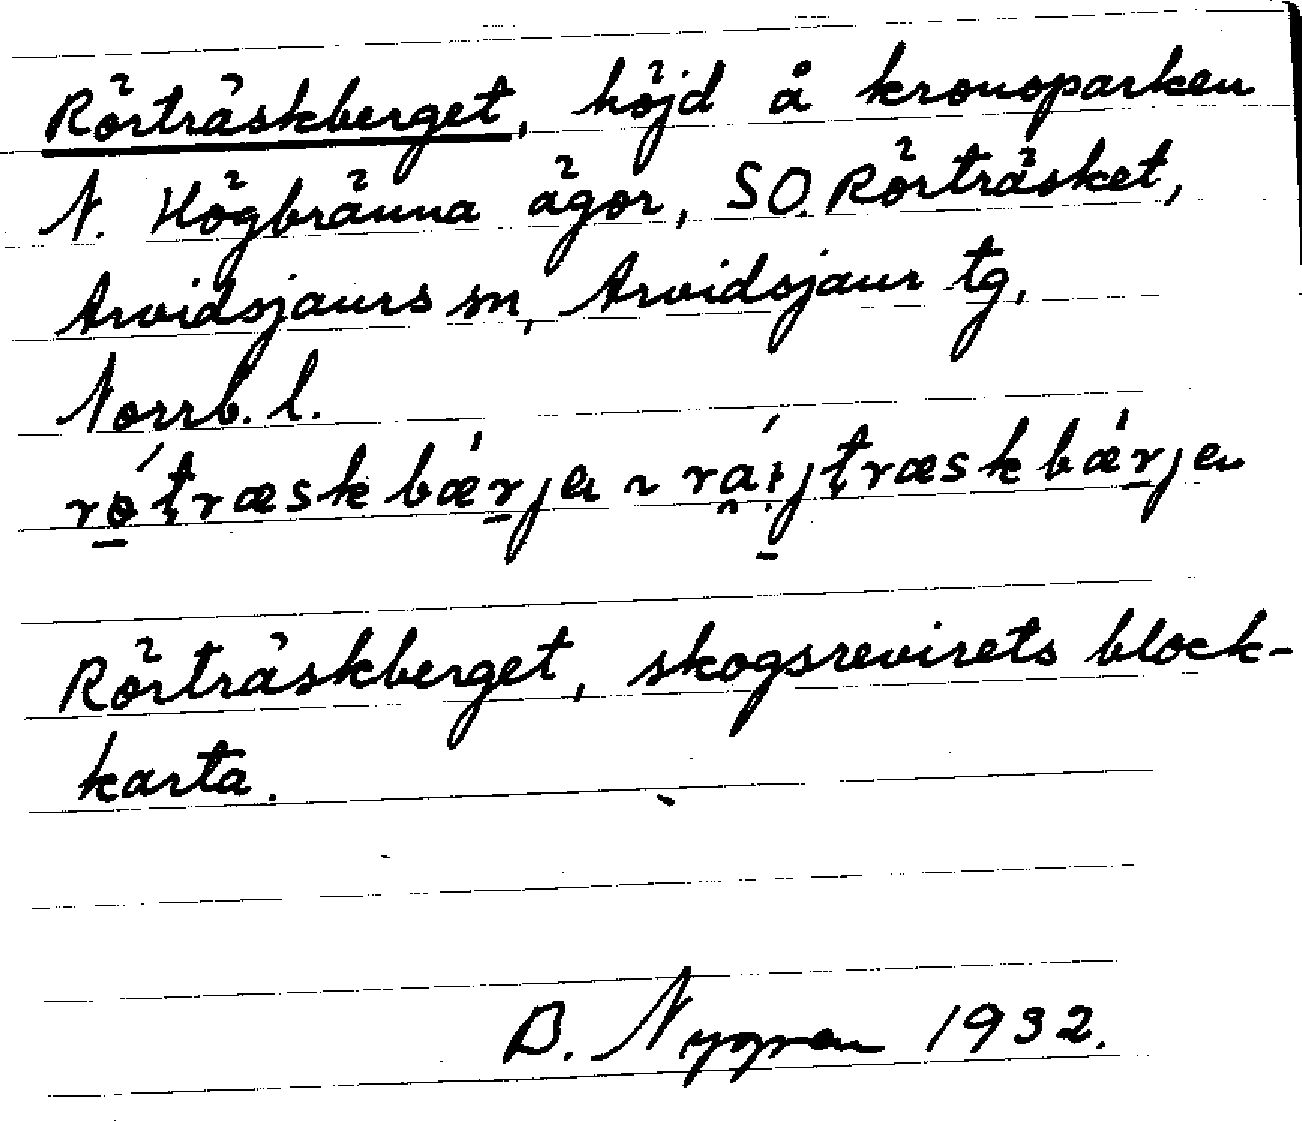 Rörträskberget, höjd å kronoparken
N. Högbränna ägor, SO. Rörträsket,
Arvidsjaurs sn, Arvidsjaur tg,
Norrb. l.
Rörträskberget, skogsrevirets block-
karta.
B. Nygren 1932.